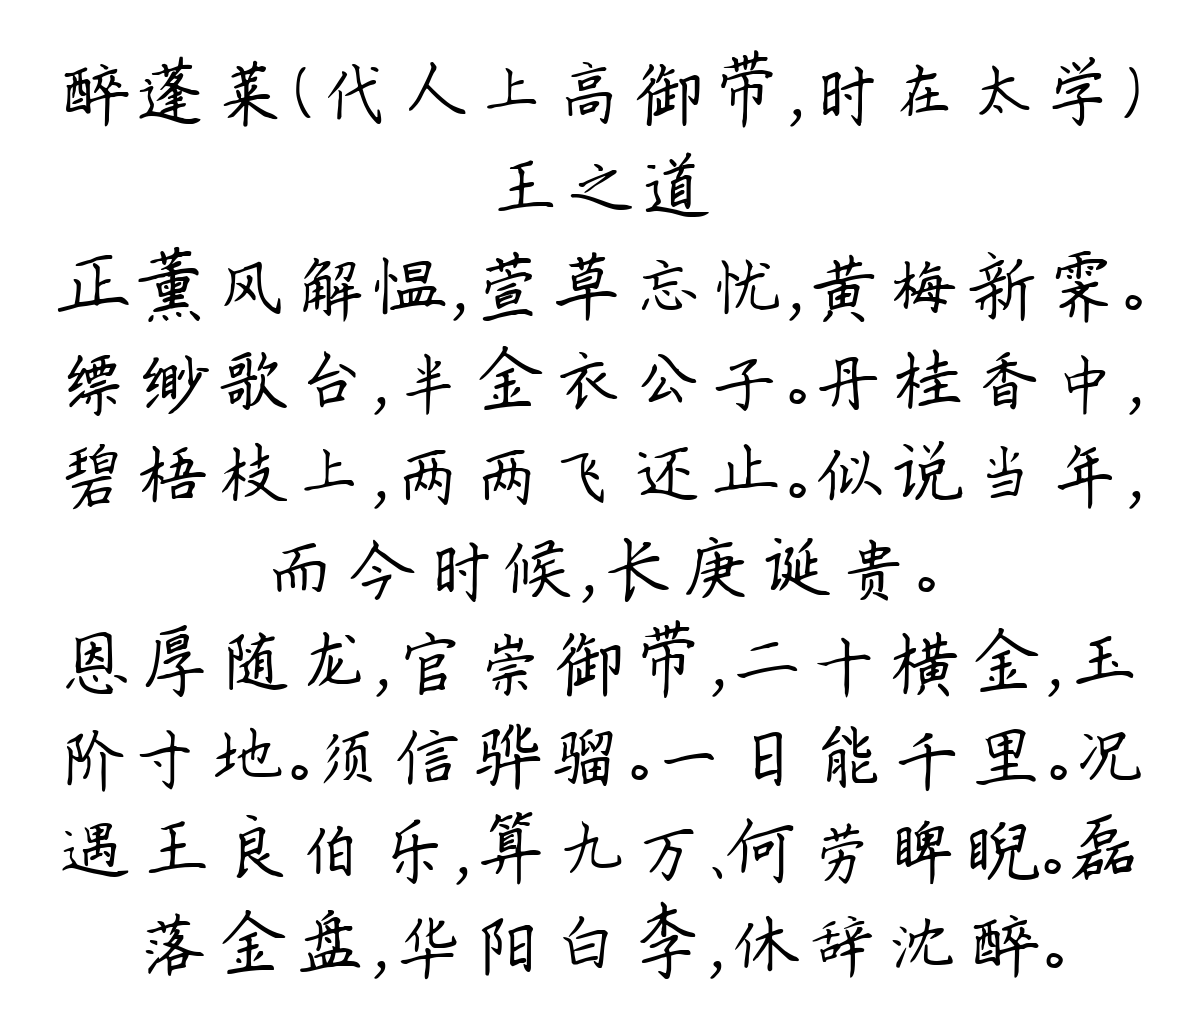 醉蓬莱(代人上高御带,时在太学)
王之道
正薰风解愠,萱草忘忧,黄梅新霁。
缥缈歌台,半金衣公子。丹桂香中,
碧梧枝上,两两飞还止。似说当年,
而今时候,长庚诞贵。
恩厚随龙,官崇御带,二十横金,玉
阶寸地。须信骅骝。一日能千里。况
遇王良伯乐,算九万、何劳睥睨。磊
落金盘,华阳白李,休辞沈醉。